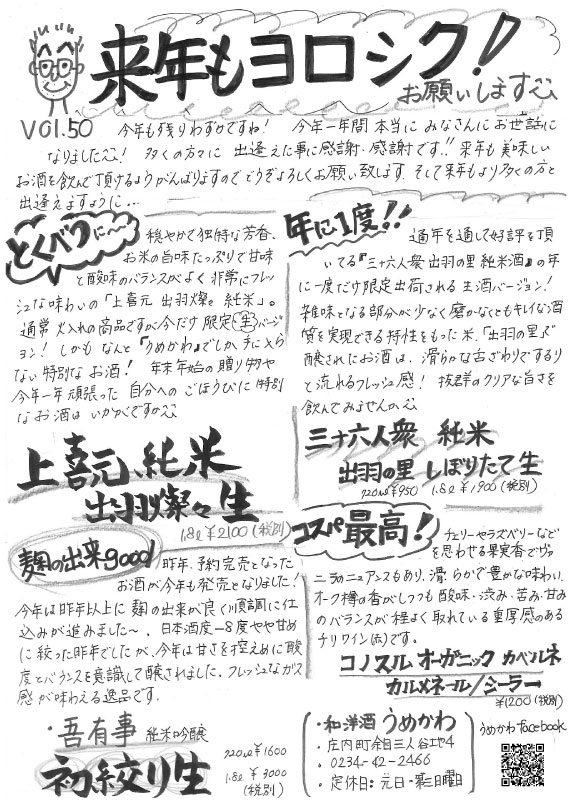 来年もヨロシク!
お願いします
VOl.50
今年も残りわずかですね! 今年一年間本当にみなさんにお世話に
なりました! 多くの方々に 出逢えた事に感謝・感謝です!! 来年も美味しい
お酒を飲んで頂けるようがんばりますのでどうぞよろしくお願い致します。そして来年もより多くの方と
出逢えますように…
とくべつに〜
穏やかで独特な芳香、
お米の旨味たっぷりで甘味
と酸味のバランスがよく非常にフレッ
シュな味わいの「上喜元 出羽燦々 純米」。
通常 火入れの商品ですが今だけ限定 生バージ
ョン! しかもなんと『うめかわ』でしか手に入ら
ない特別なお酒! 年末年始の贈り物や
今年一年頑張った 自分へのごほうびに特別
なお酒はいかがですか
上喜元 純米
出羽燦々 生
1.8l ¥2100 (税別)
年に1度!!
通年を通して好評を頂
いてる『三十六人衆 出羽の里 純米酒』の年
に一度だけ限定出荷される生酒バージョン!
雑味となる部分が少なく磨かなくともキレイな酒
質を実現できる特性をもった米、「出羽の里」で
醸されたお酒は、滑らかな舌ざわりでするり
と流れるフレッシュ感! 抜群のクリアな旨さを
飲んでみませんか
三十六人衆 純米
出羽の里 しぼりたて生
720ml ¥950 1.8l ¥1900 (税別)
麹の出来good!
昨年、予約完売となった
お酒が今年も発売となりました!
今年は昨年以上に麹の出来が良く順調に仕
込みが進みました〜。日本酒度-8度やや甘め
に絞った昨年でしたが、今年は甘さを控えめに酸
度とバランスを意識して醸されました。フレッシュなガス
感が味わえる逸品です。
・吾有事 純米吟醸
初絞り生
720ml ¥1600
1.8l ¥3000
(税別)
コスパ最高!
チェリーやラズベリーなど
を思わせる果実香とヴァ
ニラのニュアンスもあり、滑らかで豊かな味わい、
オーク樽の香がしつつも酸味・渋み・苦み・甘み
のバランスが程よく取れている重厚感のある
チリワイン(赤)です。
コノスル オーガニック カベルネ
カルメネール/シーラー
¥1200 (税別)
・和洋酒 うめかわ
・庄内町余目三人谷地4
・0234-42-2466
・定休日: 元日・第三日曜日
うめかわfacebook